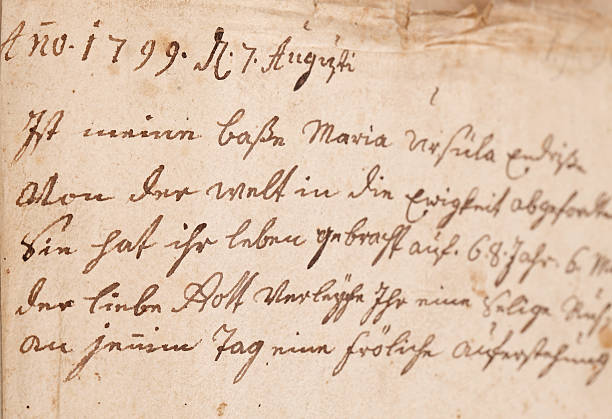 Año. 1799. D. 7. Augusti
Ist meine baße Maria Ursula
Von der welt in die Ewigkeit
Sie hat ihr leben gebracht auf. 68. Jahr. 6.
der liebe Gott Verleyhe Ihr eine Selige
an jenem Tag eine fröliche aufferstehung